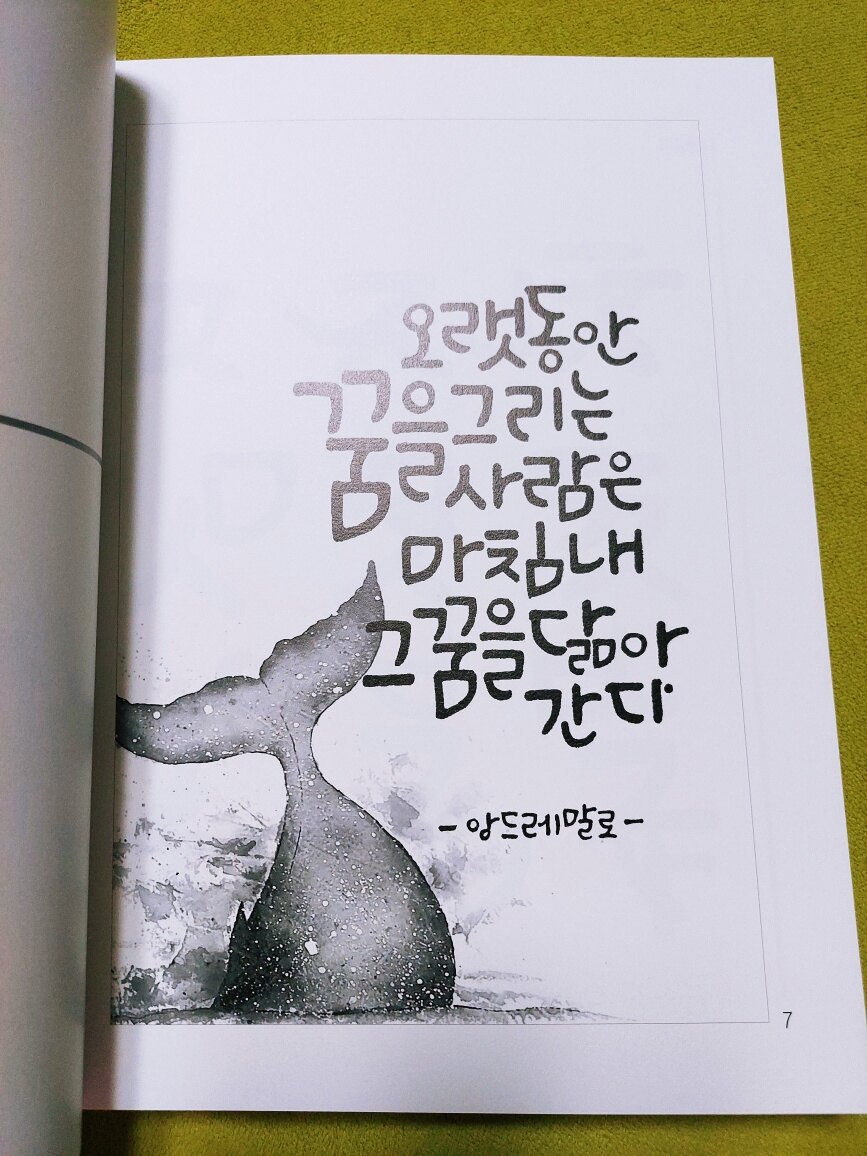 오랫동안
꿈을 그리는
사람은
마침내
그 꿈을 닮아
간다
-앙드레 말로-
7